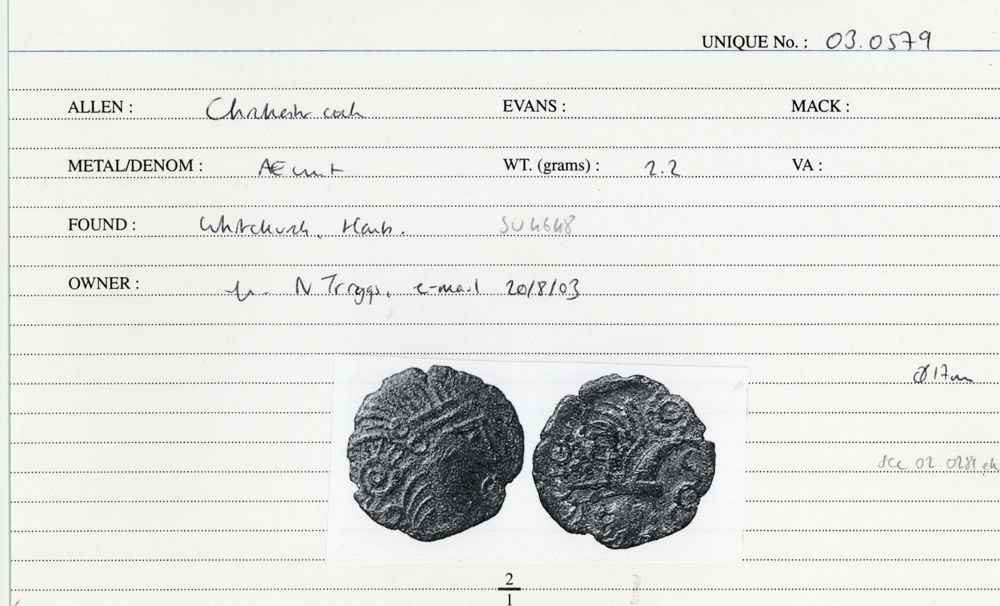 UNIQUE No. : 03.0579
ALLEN : Chichester cock EVANS : MACK :
METAL/DENOM : AE unit WT. (grams) : 2.2 VA :
FOUND : Whitchurch, Hants. SU4648
OWNER : N Triggs, e-mail 20/8/03
Ø 17mm
see 02.0281
2
1